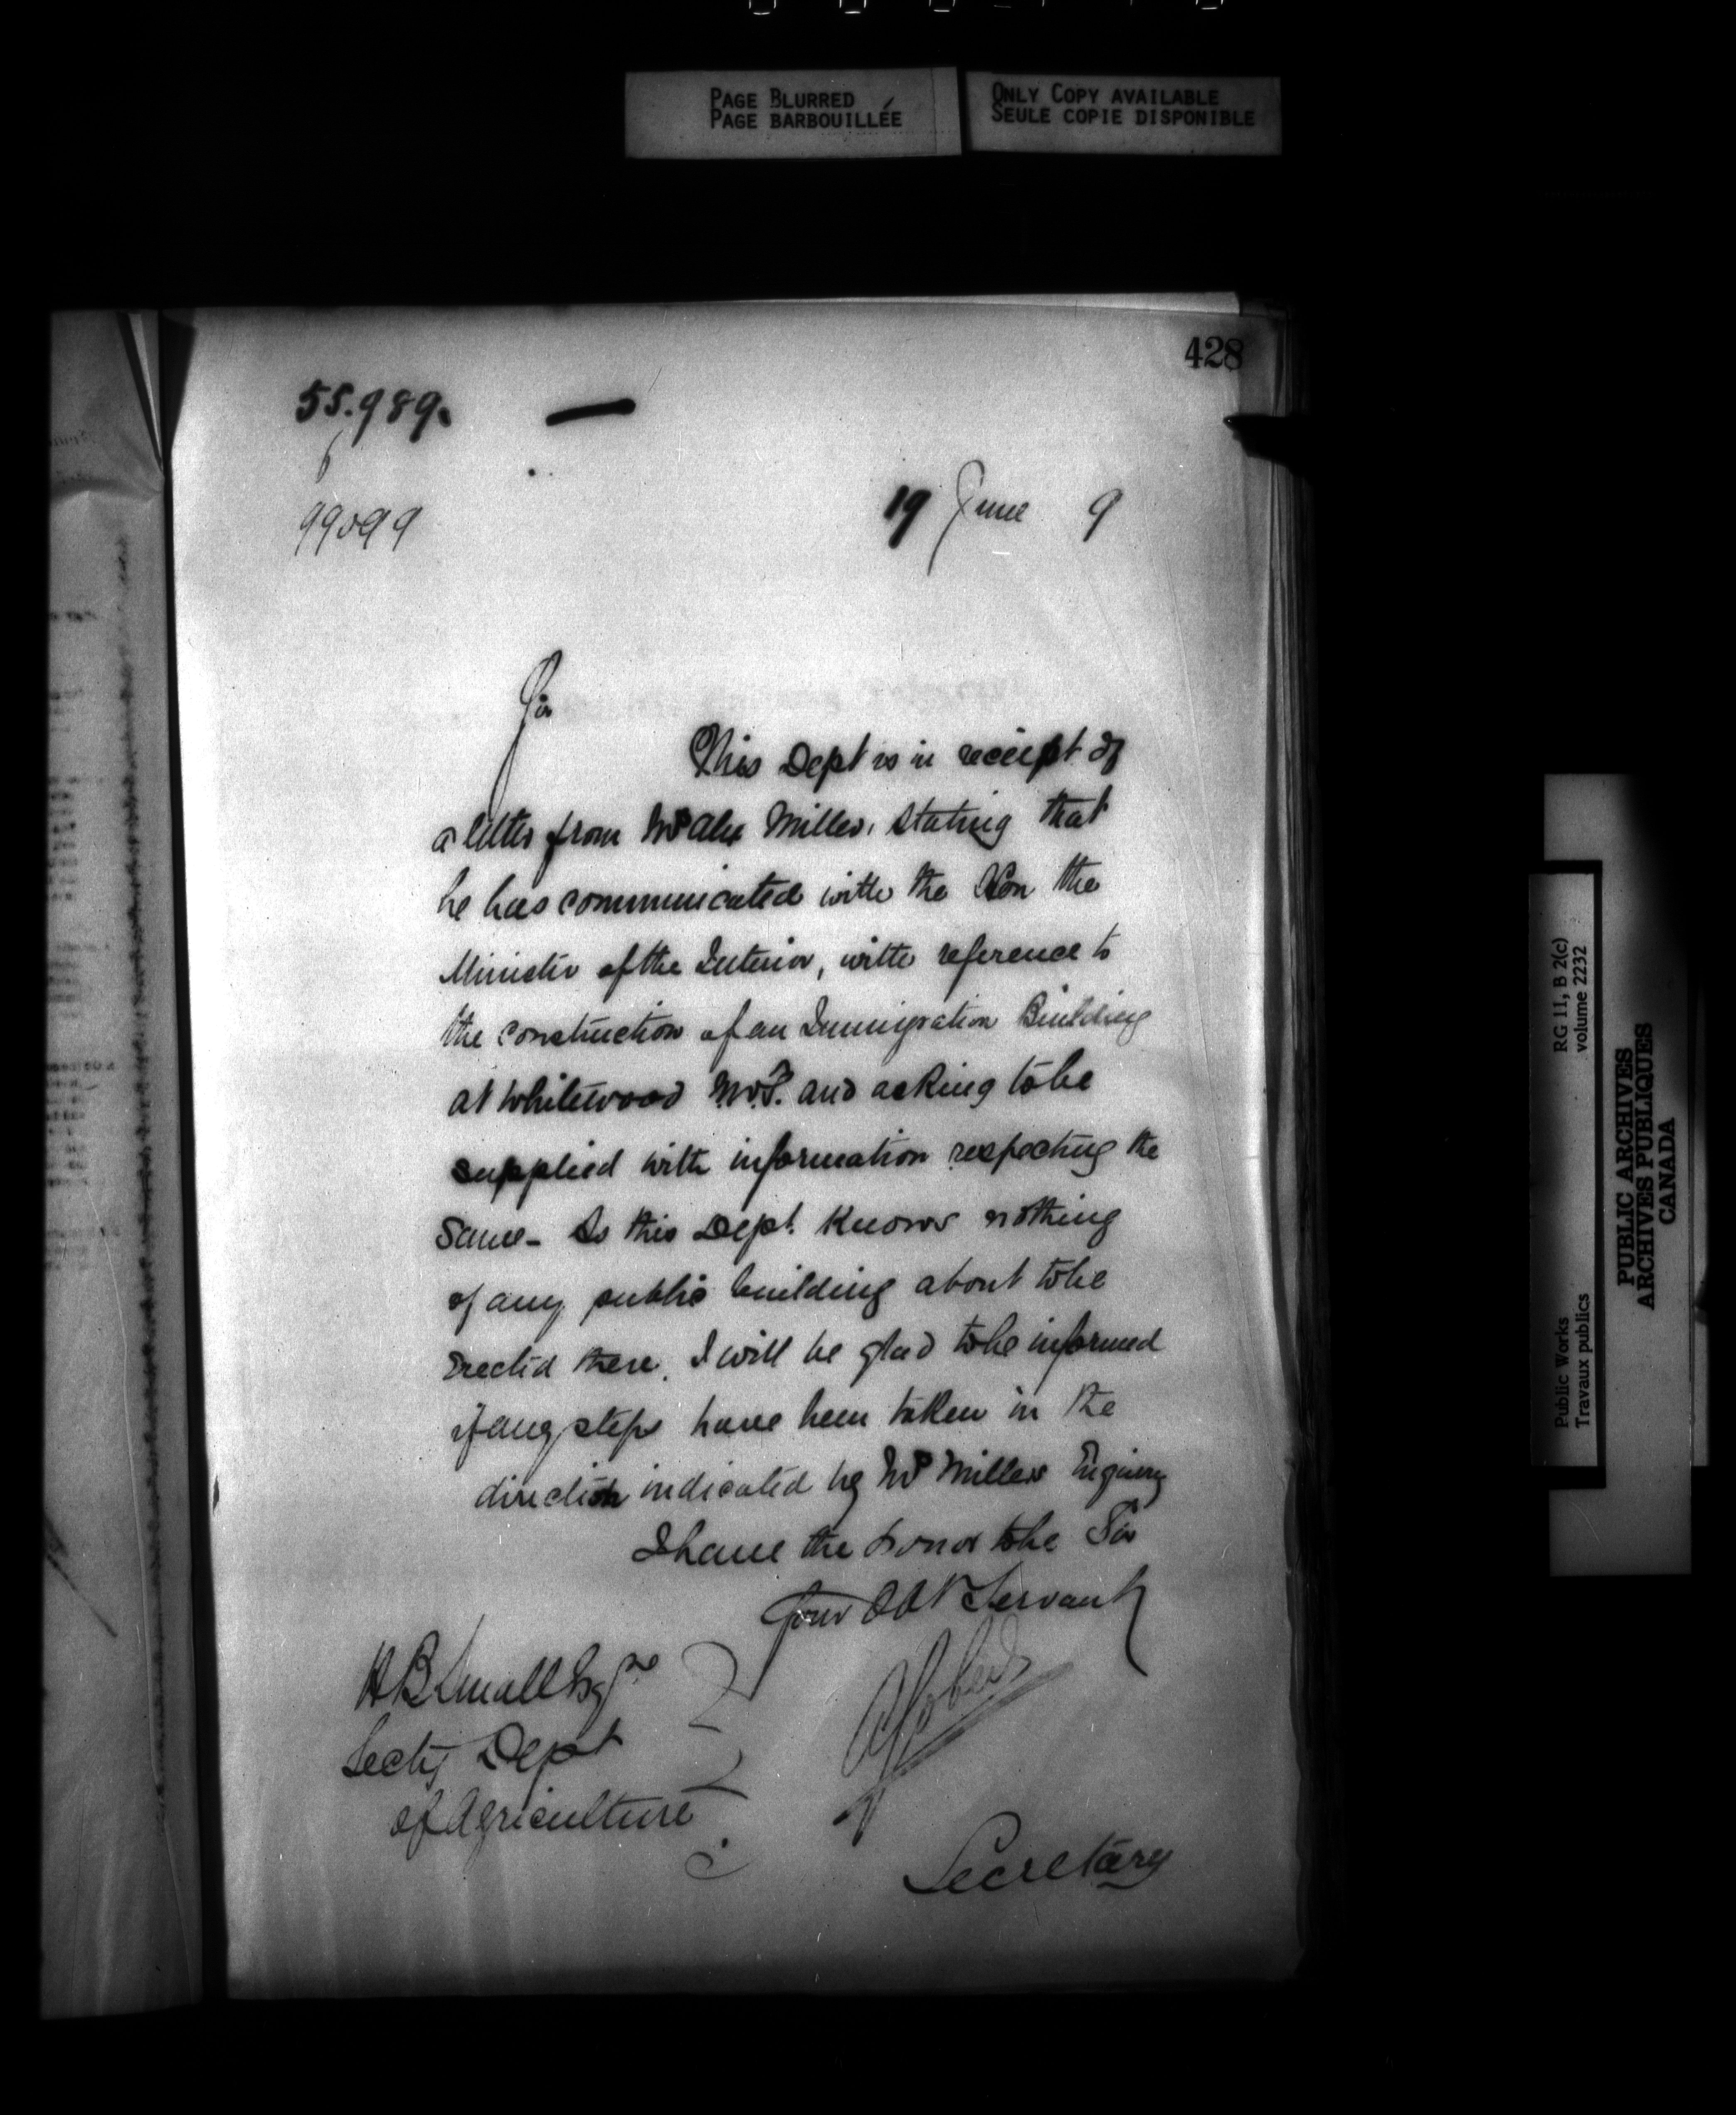 PAGE BLURRED
PAGE BARBOUILLÉE
ONLY COPY AVAILABLE
SEULE COPIE DISPONIBLE
428
55.989.
99099
19 June 9
Sir
This Dept is in receipt of
a letter from Mr Alex Miller, stating that
he has communicated with the Hon the
Minister of the Interior, with reference to
the construction of an Immigration Building
at Whitewood N.W.T. and asking to be
supplied with information respecting the
same - As this Dept. knows nothing
of any public building about to be
erected there, I will be glad to be informed
if any steps have been taken in the
direction indicated by Mr Millers Enquiry
I have the honor to be Sir
Your Obt Servant
H B Small Esqre
Secty Dept
of Agriculture
Secretary
RG 11, B 2(c)
volume 2232
Public Works
Travaux publics
PUBLIC ARCHIVES
ARCHIVES PUBLIQUES
CANADA